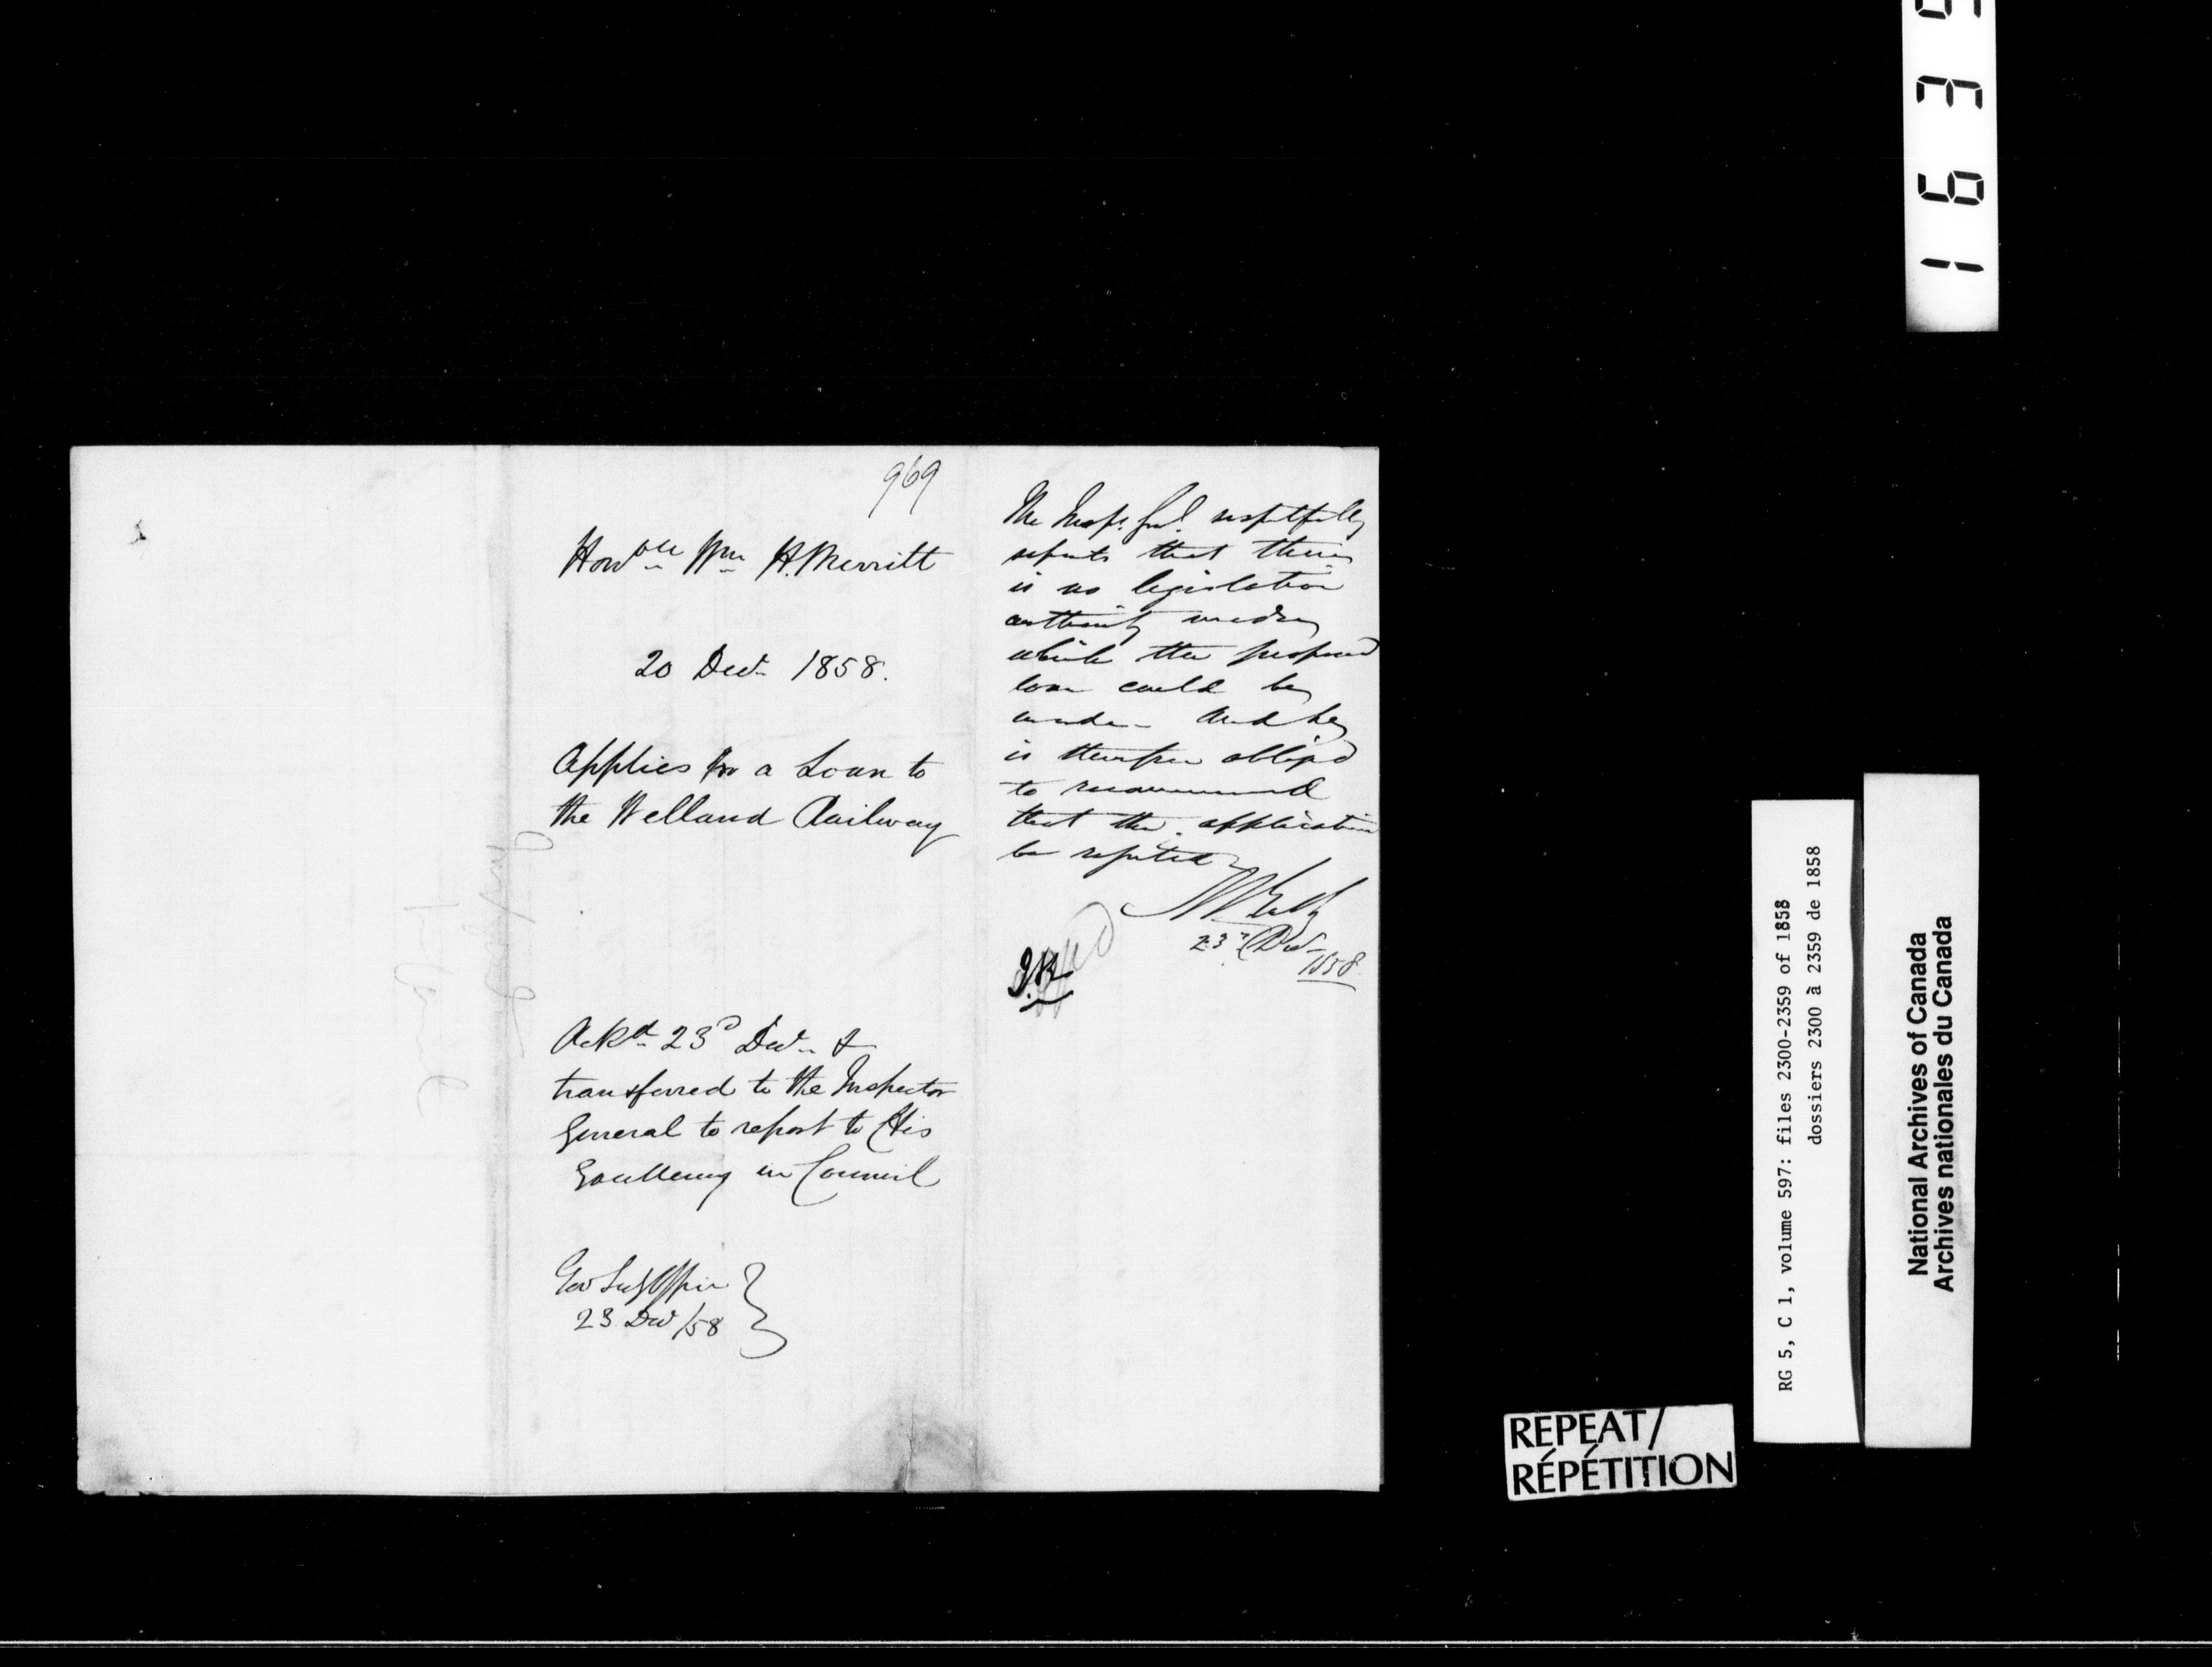 969
Honble Wm H. Merritt
20 Decr 1858.
Applies for a Loan to
the Welland Railway
Ackd 23d Decr &
transferred to the Inspector
General to report to His
Excellency in Council
Gov Secy Office
23 Decr /58
The Inspr. Genl. respectfully
reports that there
is no legislative
authority under
which the proposed
loan could be
made - And he
is therefore obliged
to recommend
that the application
be rejected
23d Decr
1858
1 6 3 9
RG 5, C 1, volume 597: files 2300-2359 of 1858
dossiers 2300 à 2359 de 1858
National Archives of Canada
Archives nationales du Canada
REPEAT/
RÉPÉTITION